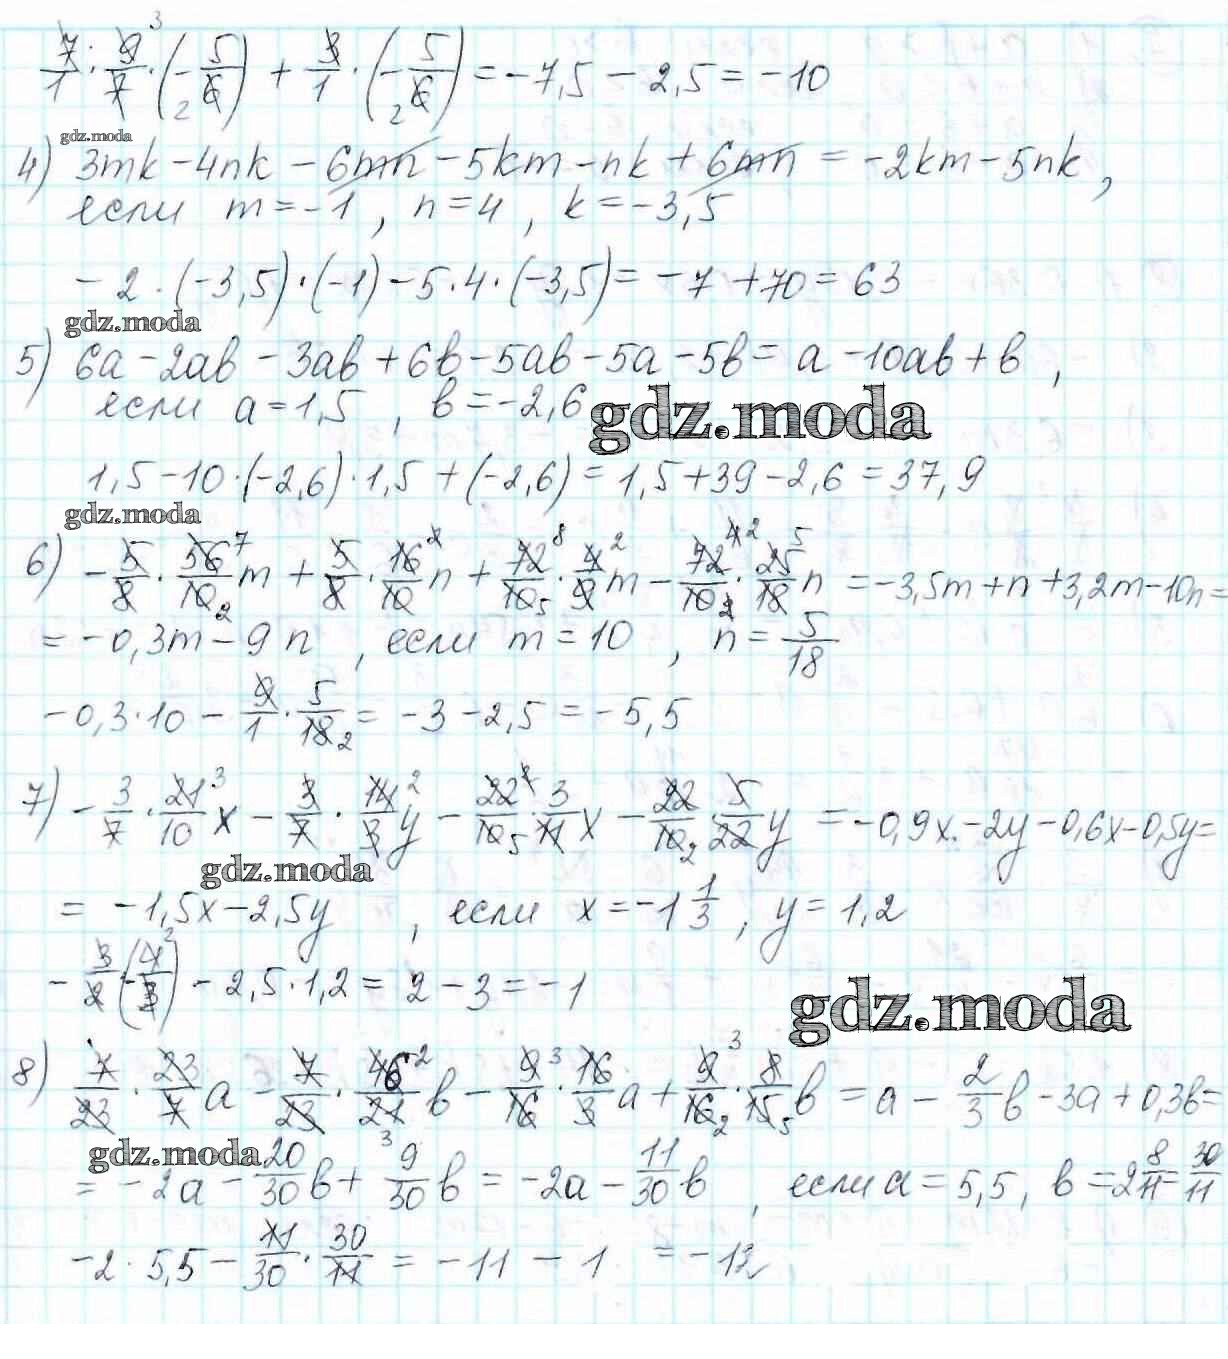 7/1 · 9/7 · (-5/6) + 3/1 · (-5/6) = -7,5 - 2,5 = -10
gdz.moda
4) 3mk - 4nk - 6mn - 5km - nk + 6mn = -2km - 5nk,
если m = -1, n = 4, k = -3,5
-2 · (-3,5) · (-1) - 5 · 4 · (-3,5) = -7 + 70 = 63
gdz.moda
5) 6a - 2ab - 3ab + 6b - 5ab - 5a - 5b = a - 10ab + b,
если a = 1,5, b = -2,6
gdz.moda
1,5 - 10 · (-2,6) · 1,5 + (-2,6) = 1,5 + 39 - 2,6 = 37,9
gdz.moda
6) -5/8 · 56/10 m + 5/8 · 16/10 n + 72/10 · 4/9 m - 72/10 · 25/18 n = -3,5m + n + 3,2m - 10n =
= -0,3m - 9n, если m = 10, n = 5/18
-0,3 · 10 - 9/1 · 5/18 = -3 - 2,5 = -5,5
7) -3/7 · 21/10 x - 3/7 · 14/3 y - 22/10 · 3/11 x - 22/10 · 5/22 y = -0,9x - 2y - 0,6x - 0,5y =
gdz.moda
= -1,5x - 2,5y, если x = -1 1/3, y = 1,2
-3/2 (-4/3) - 2,5 · 1,2 = 2 - 3 = -1
gdz.moda
8) 7/23 · 23/7 a - 7/23 · 46/21 b - 9/16 · 16/3 a + 9/16 · 8/15 b = a - 2/3 b - 3a + 0,3b =
gdz.moda
= -2a - 20/30 b + 9/30 b = -2a - 11/30 b, если a = 5,5, b = 2 8/11 = 30/11
-2 · 5,5 - 11/30 · 30/11 = -11 - 1 = -12